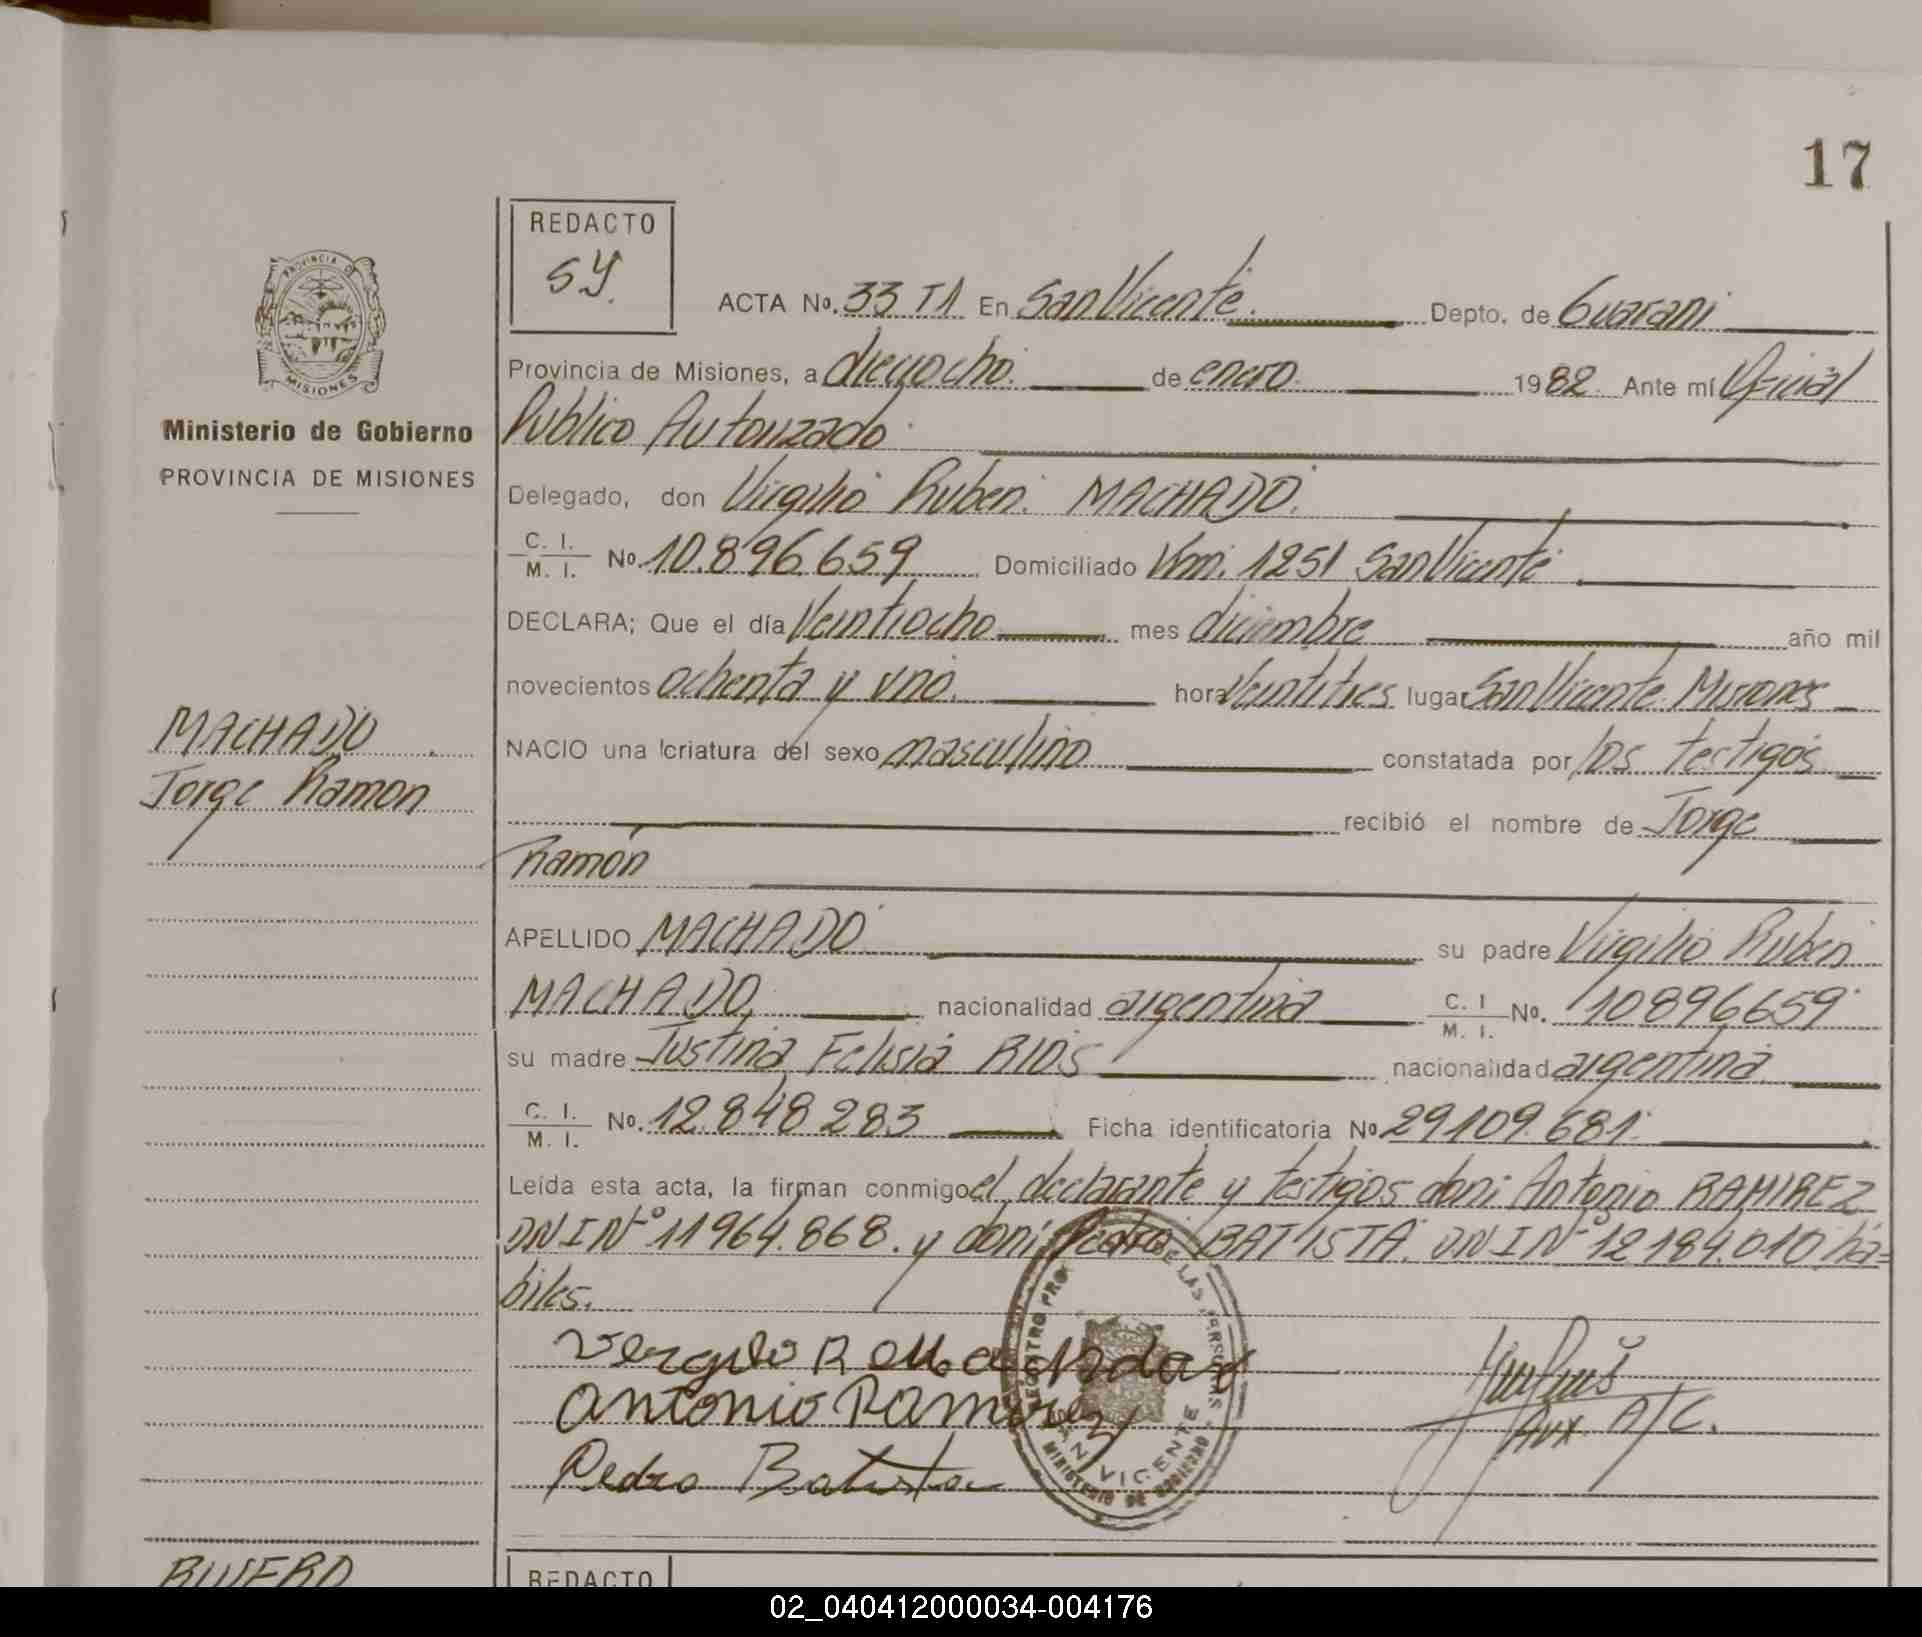 17
REDACTO
SY.
PROVINCIA DE
MISIONES
Ministerio de Gobierno
PROVINCIA DE MISIONES
ACTA Nº. 33 T1 En San Vicente. Depto. de Guarani
Provincia de Misiones, a dieciocho. de enero. 1982. Ante mí Oficial
Publico Autorizado
Delegado, don Virgilio Ruben. MACHADO.
C. I.
M. I. Nº 10.896.659 Domiciliado Km. 1251 San Vicente
DECLARA; Que el día Veintiocho mes diciembre año mil
novecientos ochenta y uno. hora Veintitres lugar San Vicente Misiones
MACHADO
Jorge Ramon
NACIO una criatura del sexo masculino constatada por los testigos
recibió el nombre de Jorge
Ramón
APELLIDO MACHADO su padre Virgilio Ruben
MACHADO, nacionalidad argentina C. I
M. I. Nº. 10896659
su madre Justina Felisia RIOS nacionalidad argentina
C. I.
M. I. Nº. 12.848.283 Ficha identificatoria Nº 29.109.681.
Leída esta acta, la firman conmigo el declarante y testigos don: Antonio RAMIREZ
DNI Nº 11964.868. y don: Pedro BATISTA. DNI Nº 12184.010 há=
biles.
Antonio Ramirez
Pedro Batista
Aux. A/C.
SAN VICENTE
MINISTERIO DE GOBIERNO
RIVERO
REDACTO
02_040412000034-004176